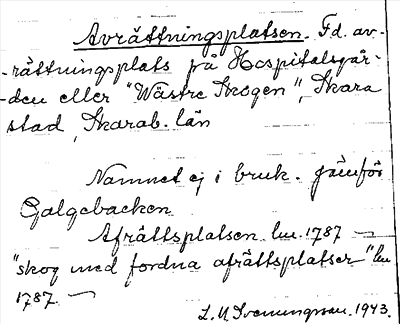 Avrättningsplatsen. Fd. av-
-rättningsplats på Hospitalsgär-
-den eller "Wästre Skogen", Skara
stad, Skarab. län
Namnet ej i bruk. jämför
Galgebacken
Afrättsplatsen lm. 1787 —
"skog med fordna afrättsplatser" lm
1787. —
L. U Svenungsson. 1943.